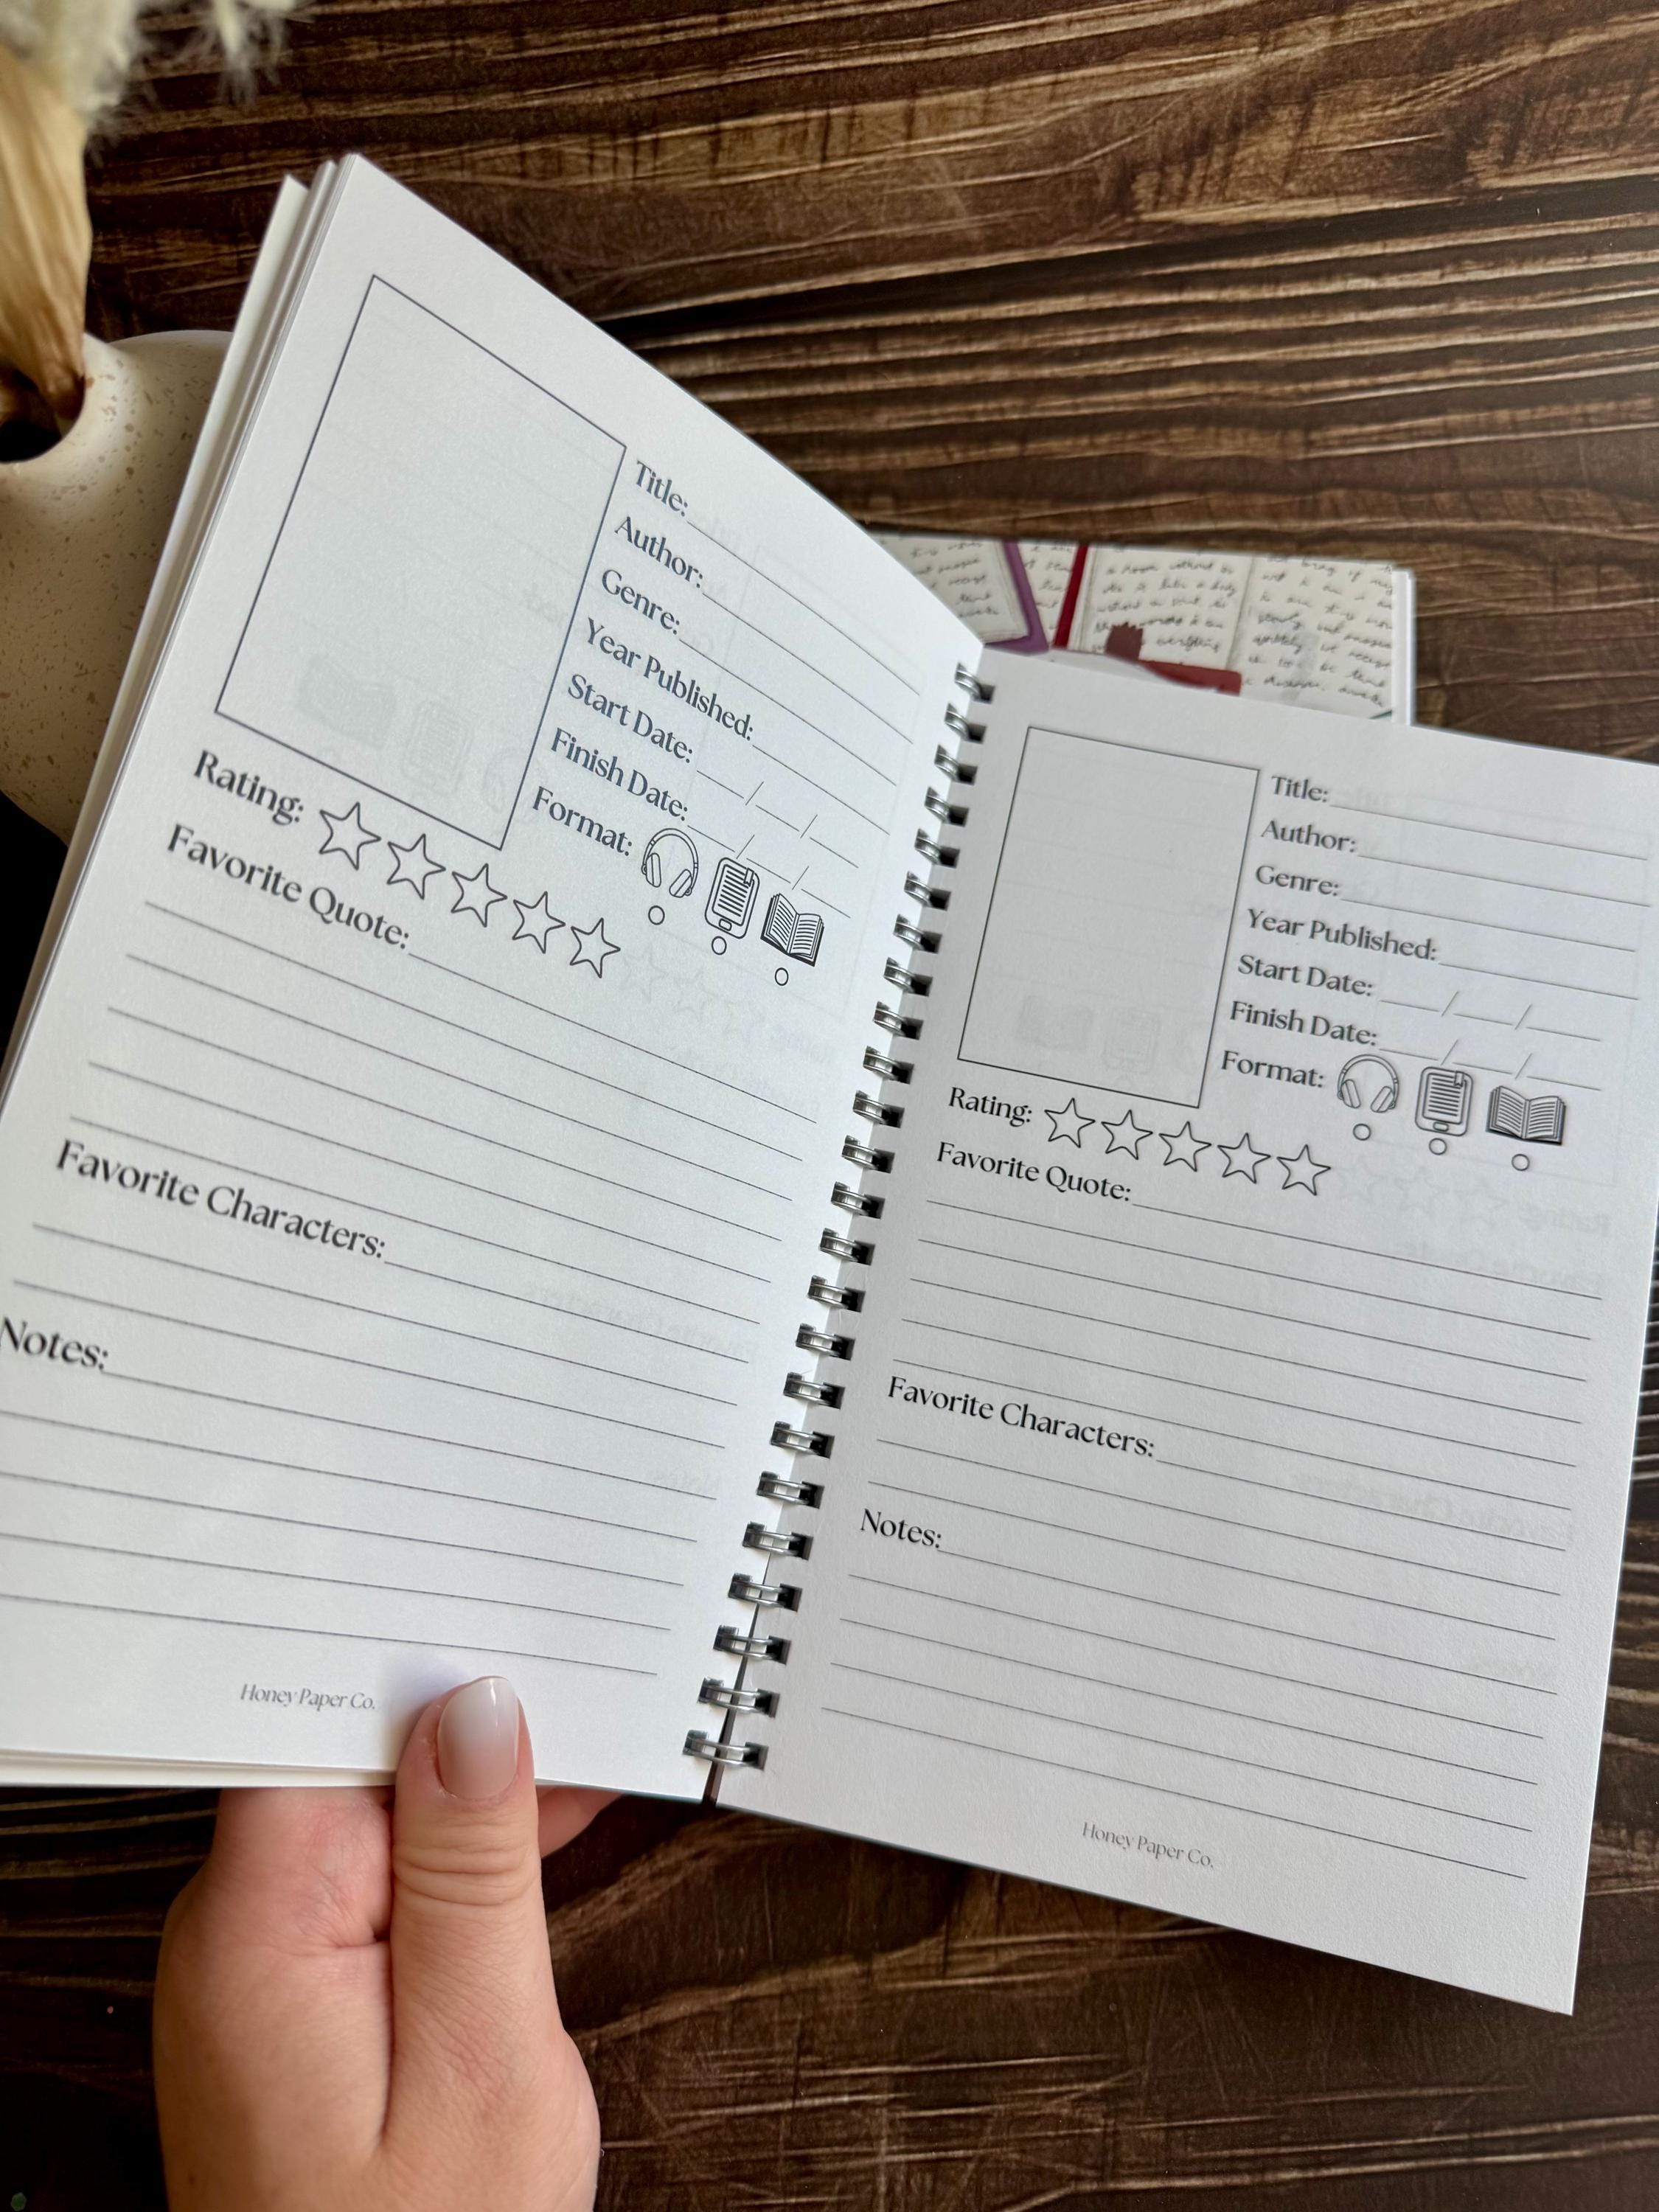 Title:
Author:
Genre:
Year Published:
Start Date: / /
Finish Date: / /
Format:
Rating:
Favorite Quote:
Favorite Characters:
Notes:
Honey Paper Co.
Title:
Author:
Genre:
Year Published:
Start Date: / /
Finish Date: / /
Format:
Rating:
Favorite Quote:
Favorite Characters:
Notes:
Honey Paper Co.